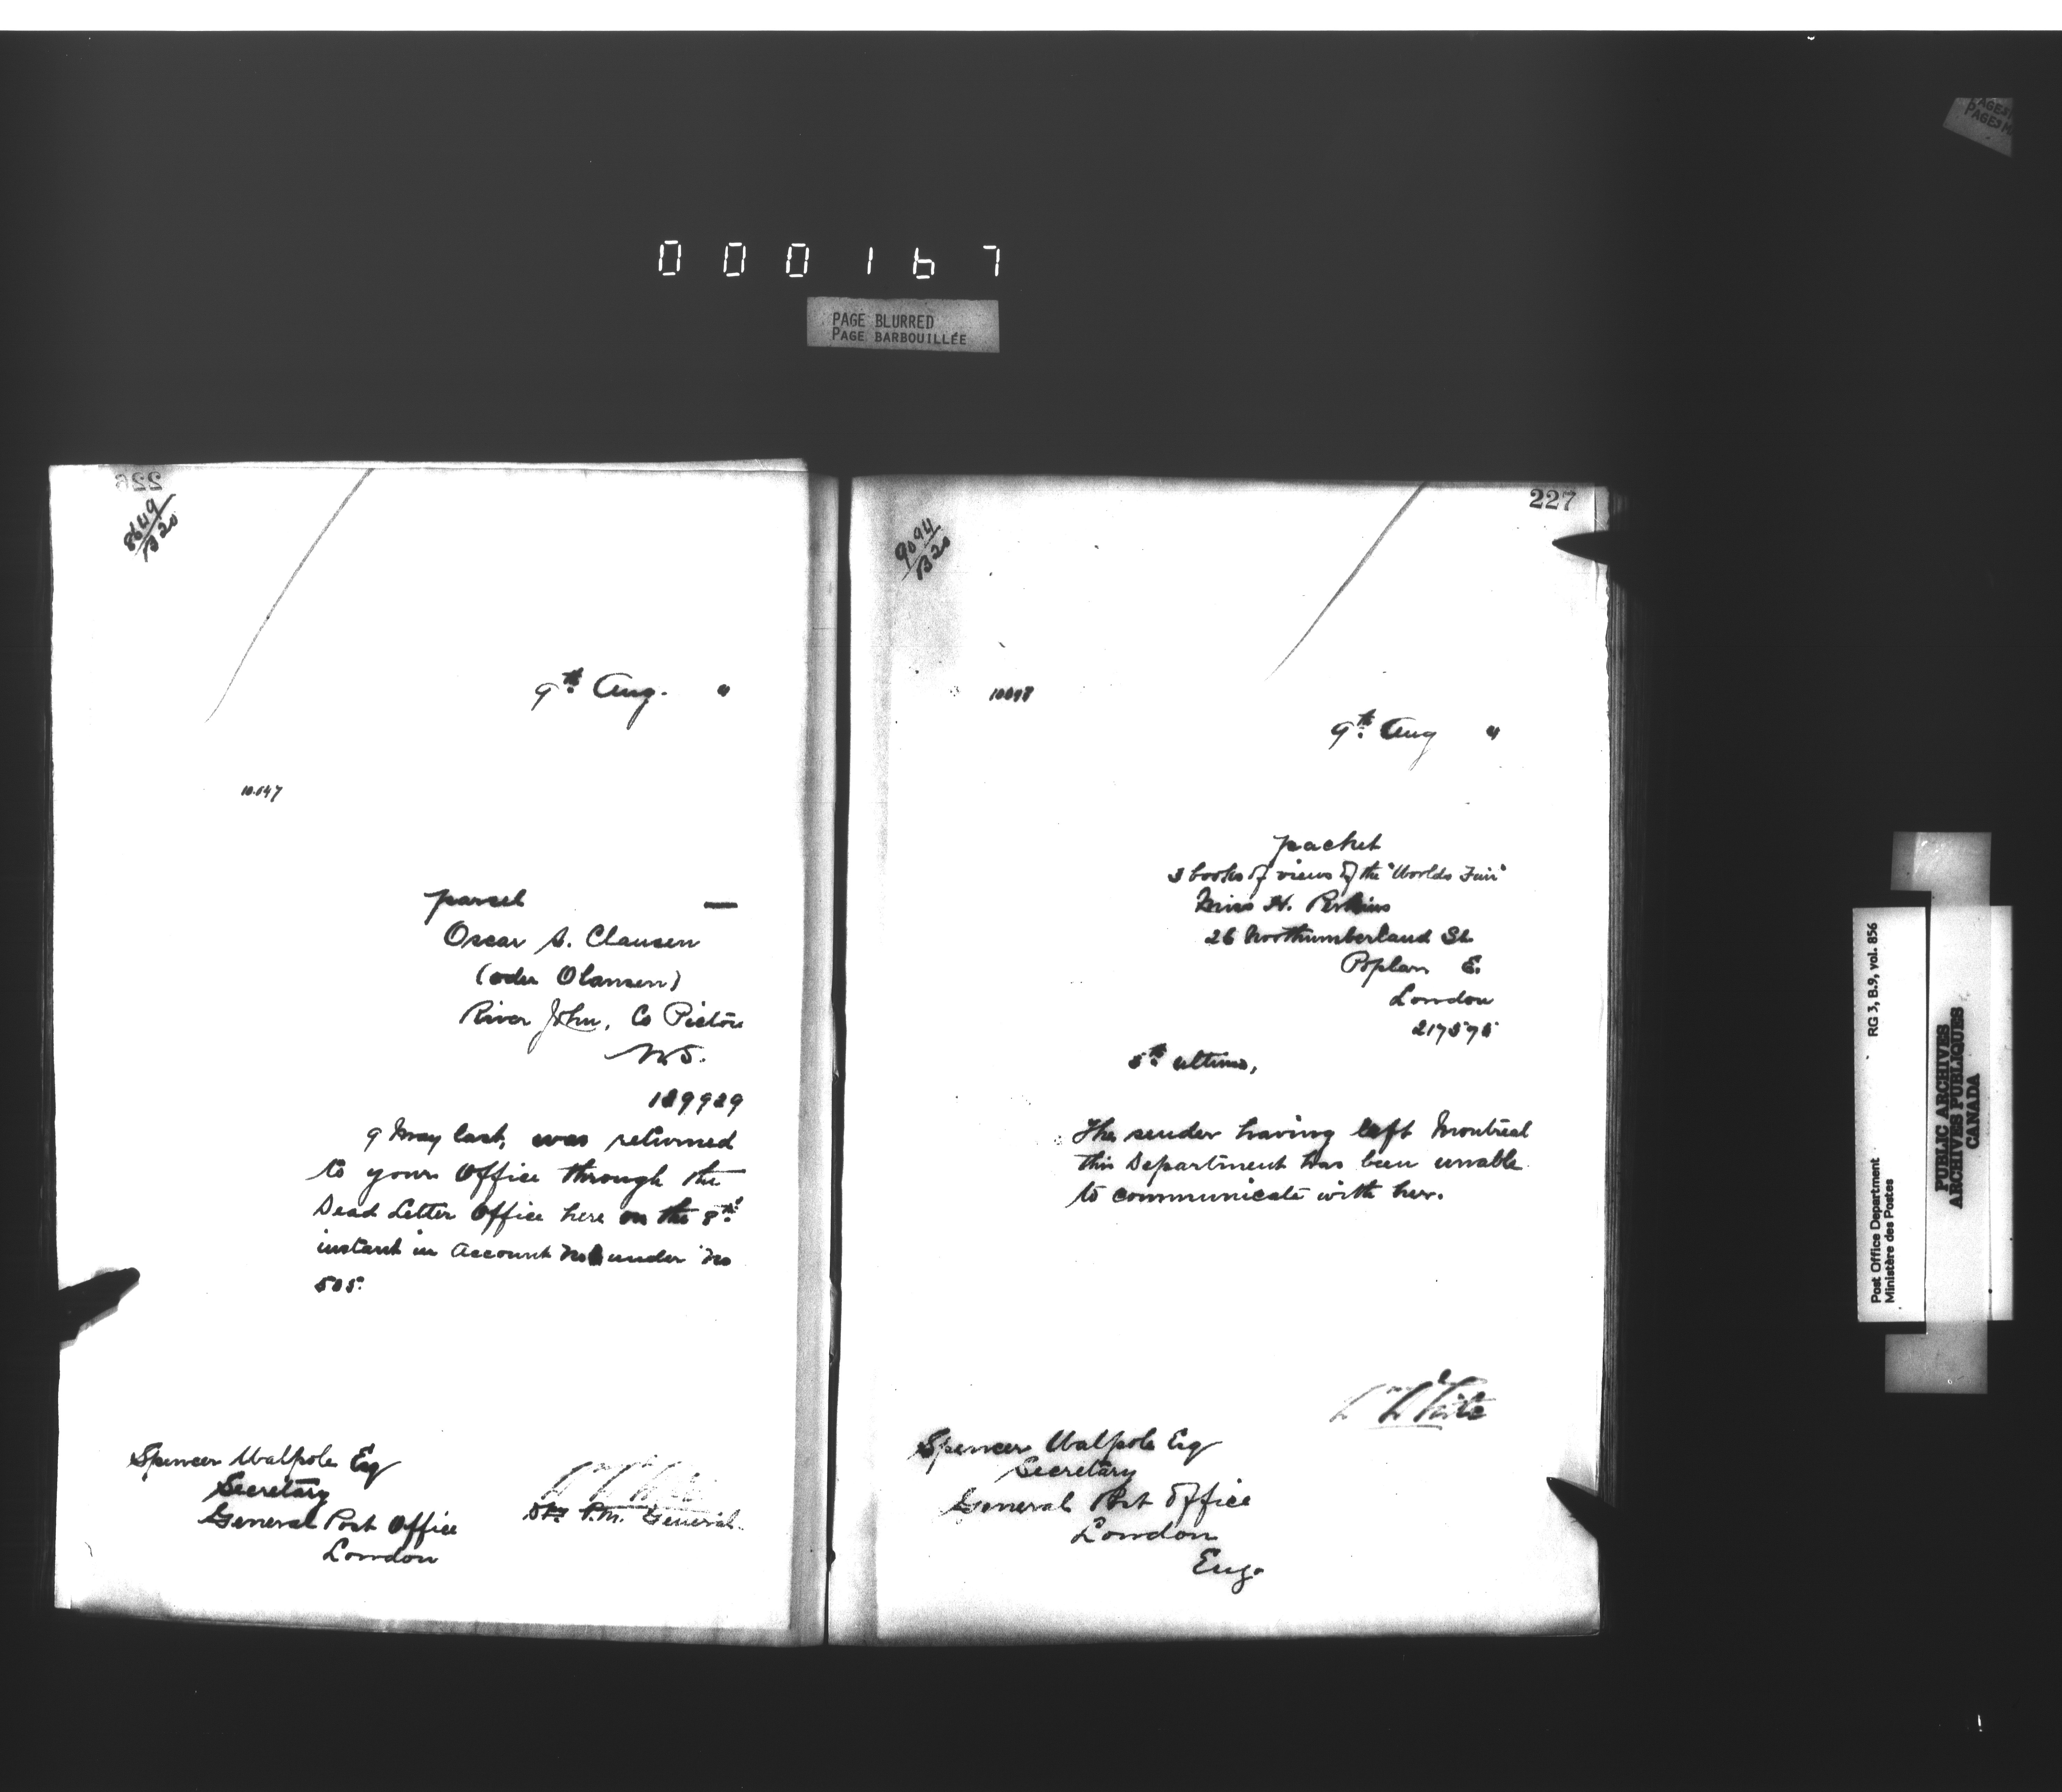 000167
PAGE BLURRED
PAGE BARBOUILLÉE
226
8649/B20
9th Aug. "
10.147
parcel —
Oscar S. Clausen
(oder Olansen)
River John, Co Pictou
N.S.
189929
9 May last, was returned
to your Office through the
Dead Letter Office here on the 8th
instant in Account No under No
505.
Spencer Walpole Esq
Secretary
General Post Office
London
Dy. P.M. General
227
9094/B20
9th Aug "
packet
3 books of views of the "Worlds Fair"
Miss H. Perkins
26 Northumberland St.
Poplar E.
London
217575
5th ultimo,
The sender having left Montreal
this Department has been unable
to communicate with her.
W White
Spencer Walpole Esq
Secretary
General Post Office
London
Eng.
PAGES
Post Office Department
Ministère des Postes
RG 3, B.9, vol. 856
PUBLIC ARCHIVES
ARCHIVES PUBLIQUES
CANADA